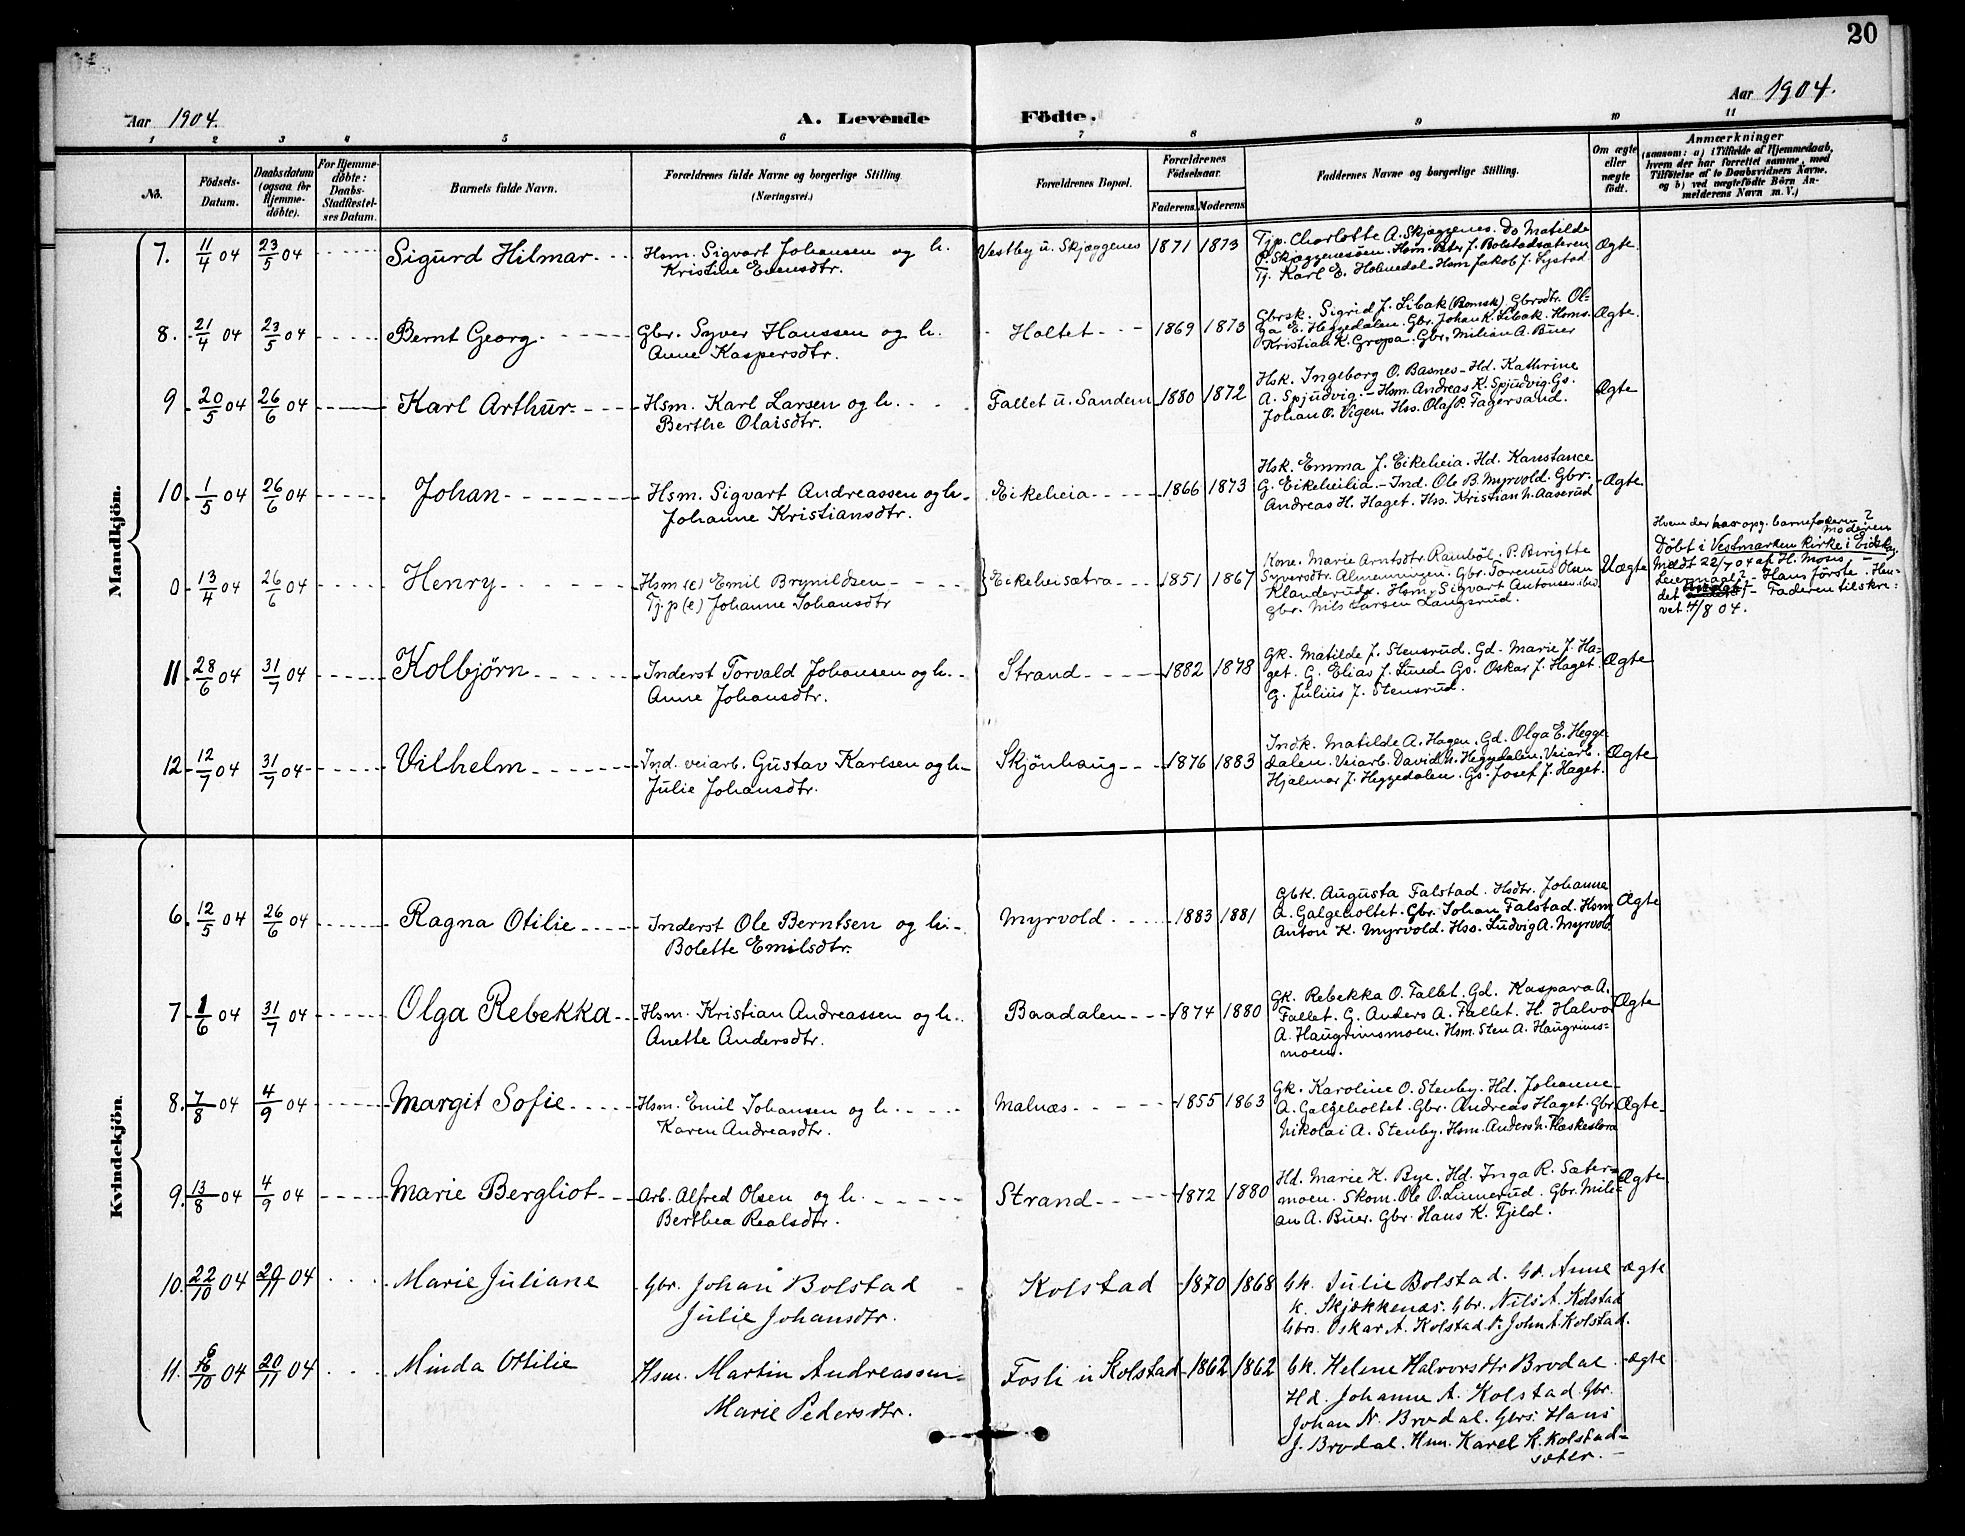 20
Aar 1904. A. Levende Födte. Aar 1904.
1 2 3 4 5 6 7 8 9 10 11
No. Födsels-Datum. Daabsdatum (ogsaa for Hjemme-döbte). For Hjemme-döbte: Daabs-Stadfæstelses Datum. Barnets fulde Navn. Forældrenes fulde Navne og borgerlige Stilling (Næringsvei.) Forældrenes Bopæl. Forældrenes Födselsaar. Faderens. Moderens Faddernes Navne og borgerlige Stilling. Om ægte eller uægte födt. Anmærkninger (saasom: a) i Tilfælde af Hjemmedaab, hvem der har forrettet samme, med Tilföielse af to Daabsvidners Navne, og b) ved uægtefödte Börn Anmelderens Navn m. V.)
Mandkjön.
7. 11/4 04 23/5 04 Sigurd Hilmar Hsm. Sigvart Johansen og h. Vestby u. Skjæggenes 1871 1873 Tjp. Charlotte A. Skjæggenes. Do Matilde Ægte.
Kristine Evensdtr. P. Skjæggenesöen. Hsm. Peter J. Bolstadsæteren
Tj. Karl E. Holmedal. Hsm Jakob J. Systad
8. 21/4 04 23/5 04 Bernt Georg Gbr. Syver Hanssen og h. Holtet 1869 1873 Gbrsk. Sigrid J. Libak (Romsk) Gbrsdtr. Ol- Ægte.
Anne Kaspersdtr. ga E. Heggedalen. Gbr. Johan K. Libak. Hsms.
Kristian K. Gropa. Gbr. Milian A. Buer
9 20/5 04 26/6 04 Karl Arthur Hsm. Karl Larsen og h. Fallet u. Sandem 1880 1872 Hsk. Ingeborg O. Basnes - Hd. Kathrine Ægte
Berthe Olaisdtr. A. Spjudvig. - Hsm. Andreas K. Spjudvig. Gs.
Johan O. Vigen. Hss. Olaf P. Fagersand.
10. 1/5 04 26/6 04 Johan Hsm. Sigvart Andreassen og h. Eikeheia 1866 1873 Hsk. Emma J. Eikeheia. Hd. Kanstance Ægte
Johanne Kristiansdtr. G. Eikeheilia. - Ind. Ole B. Myrvold. Gbr.
Andreas H. Haget. Hss. Kristian N. Aaserud
0 13/4 04 26/6 04 Henry Hsm (e) Emil Brynildsen Eikeheisætra 1851 1867 Kone. Marie Arntsdtr. Ramböl. P. Birgitte Uægte
Tj. p (e) Johanne Johansdtr Syversdtr. Almenningen. Gbr. Torenus Olsen
Klanderud. Hsm. Sigvart Antonsen ibd
Gbr. Nils Larsen Langsrud.
Hvem der har opg. barnefaderen?
Moderen
Döbt i Vestmarken kirke i Eidskog.
Meldt 22/7 04 af H. Moss
Leiermaal? - Hans förste. Hen-
det - Faderen tilskre-
vet 4/8 04.
11 28/6 04 31/7 04 Kolbjørn Inderst Torvald Johansen og h. Strand 1882 1878 Gk. Matilde J. Stensrud. Gd. Marie J. Ha- Ægte
Anne Johansdtr. get. G. Elias J. Lund Gs. Oskar J. Haget.
G. Julius J. Stensrud.
12 12/7 04 31/7 04 Vilhelm Ind. veiarb. Gustav Karlsen og h. Skjönhaug 1876 1883 Indk. Matilde A. Hagen. Gd. Olga E. Hegge- Ægte
Julie Johansdtr. dalen. Veiarb. David N. Heggedalen. Veiarb.
Hjalmar J. Heggedalen. Gs. Josef J. Haget.
Kvindekjön.
6. 12/5 04 26/6 04 Ragna Otilie Inderst Ole Berntsen og h. Myrvold 1883 1881 Gbk. Augusta Falstad. Hsdtr. Johanne Ægte
Bolette Emilsdtr. A. Galgeholtet. Gbr. Johan Falstad. Hsm
Anton K. Myrvold. Hss. Ludvig A. Myrvold.
7 1/6 04 31/7 04 Olga Rebekka Hsm. Kristian Andreassen og h. Baadalen 1874 1880 Gk. Rebekka O. Fallet. Gd. Kaspara A. Ægte
Anette Andersdtr. Fallet. G. Anders A. Fallet. H. Halvor
A. Haugrimsmoen. Hsm. Sten A. Haugrims-
moen.
8. 7/8 04 4/9 04 Margit Sofie Hsm. Emil Johansen og h. Malnæs 1855 1863 Gk. Karoline O. Stenby. Hd. Johanne Ægte
Karen Andreasdtr. A. Galgeholtet. Gbr. Andreas Haget. Gbr
Nikolai A. Stenby. Hsm. Anders N. Flaskeslora
9. 13/8 04 4/9 04 Marie Bergliot Arb. Alfred Olsen og h. Strand 1872 1880 Hd. Marie K. Bye. Hd. Inga R. Sæter- Ægte
Berthea Realsdtr. moen. Skom. Ole O. Linnerud. Gbr. Mili-
an A. Buer. Gbr. Hans K. Fjeld.
10. 22/10 04 20/11 04 Marie Juliane Gbr. Johan Bolstad Kolstad 1870 1868 Gk. Julie Bolstad. Gd. Anne Ægte
Julie Johansdtr. K. Skjækkenæs. Gbr. Nils A. Kolstad
Gbrs. Oskar A. Kolstad. P. John A. Kolstad.
11. 04 20/11 04 Minda Ottilie Hsm. Martin Andreassen Fosli u Kolstad 1862 1862 Gk. Helene Halvorsdtr Brodal. Ægte
Marie Pedersdtr. Hd. Johanne A. Kolstad. Gbr.
Johan N. Brodal. Gbrs. Hans
J. Brodal. Hsm. Karel K. Kolstad-
sæter.